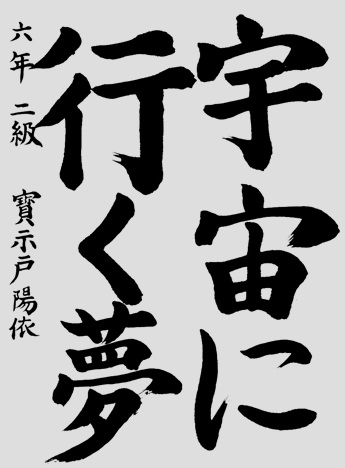 宇宙に
行く夢
六年 二級 寳示戸陽依